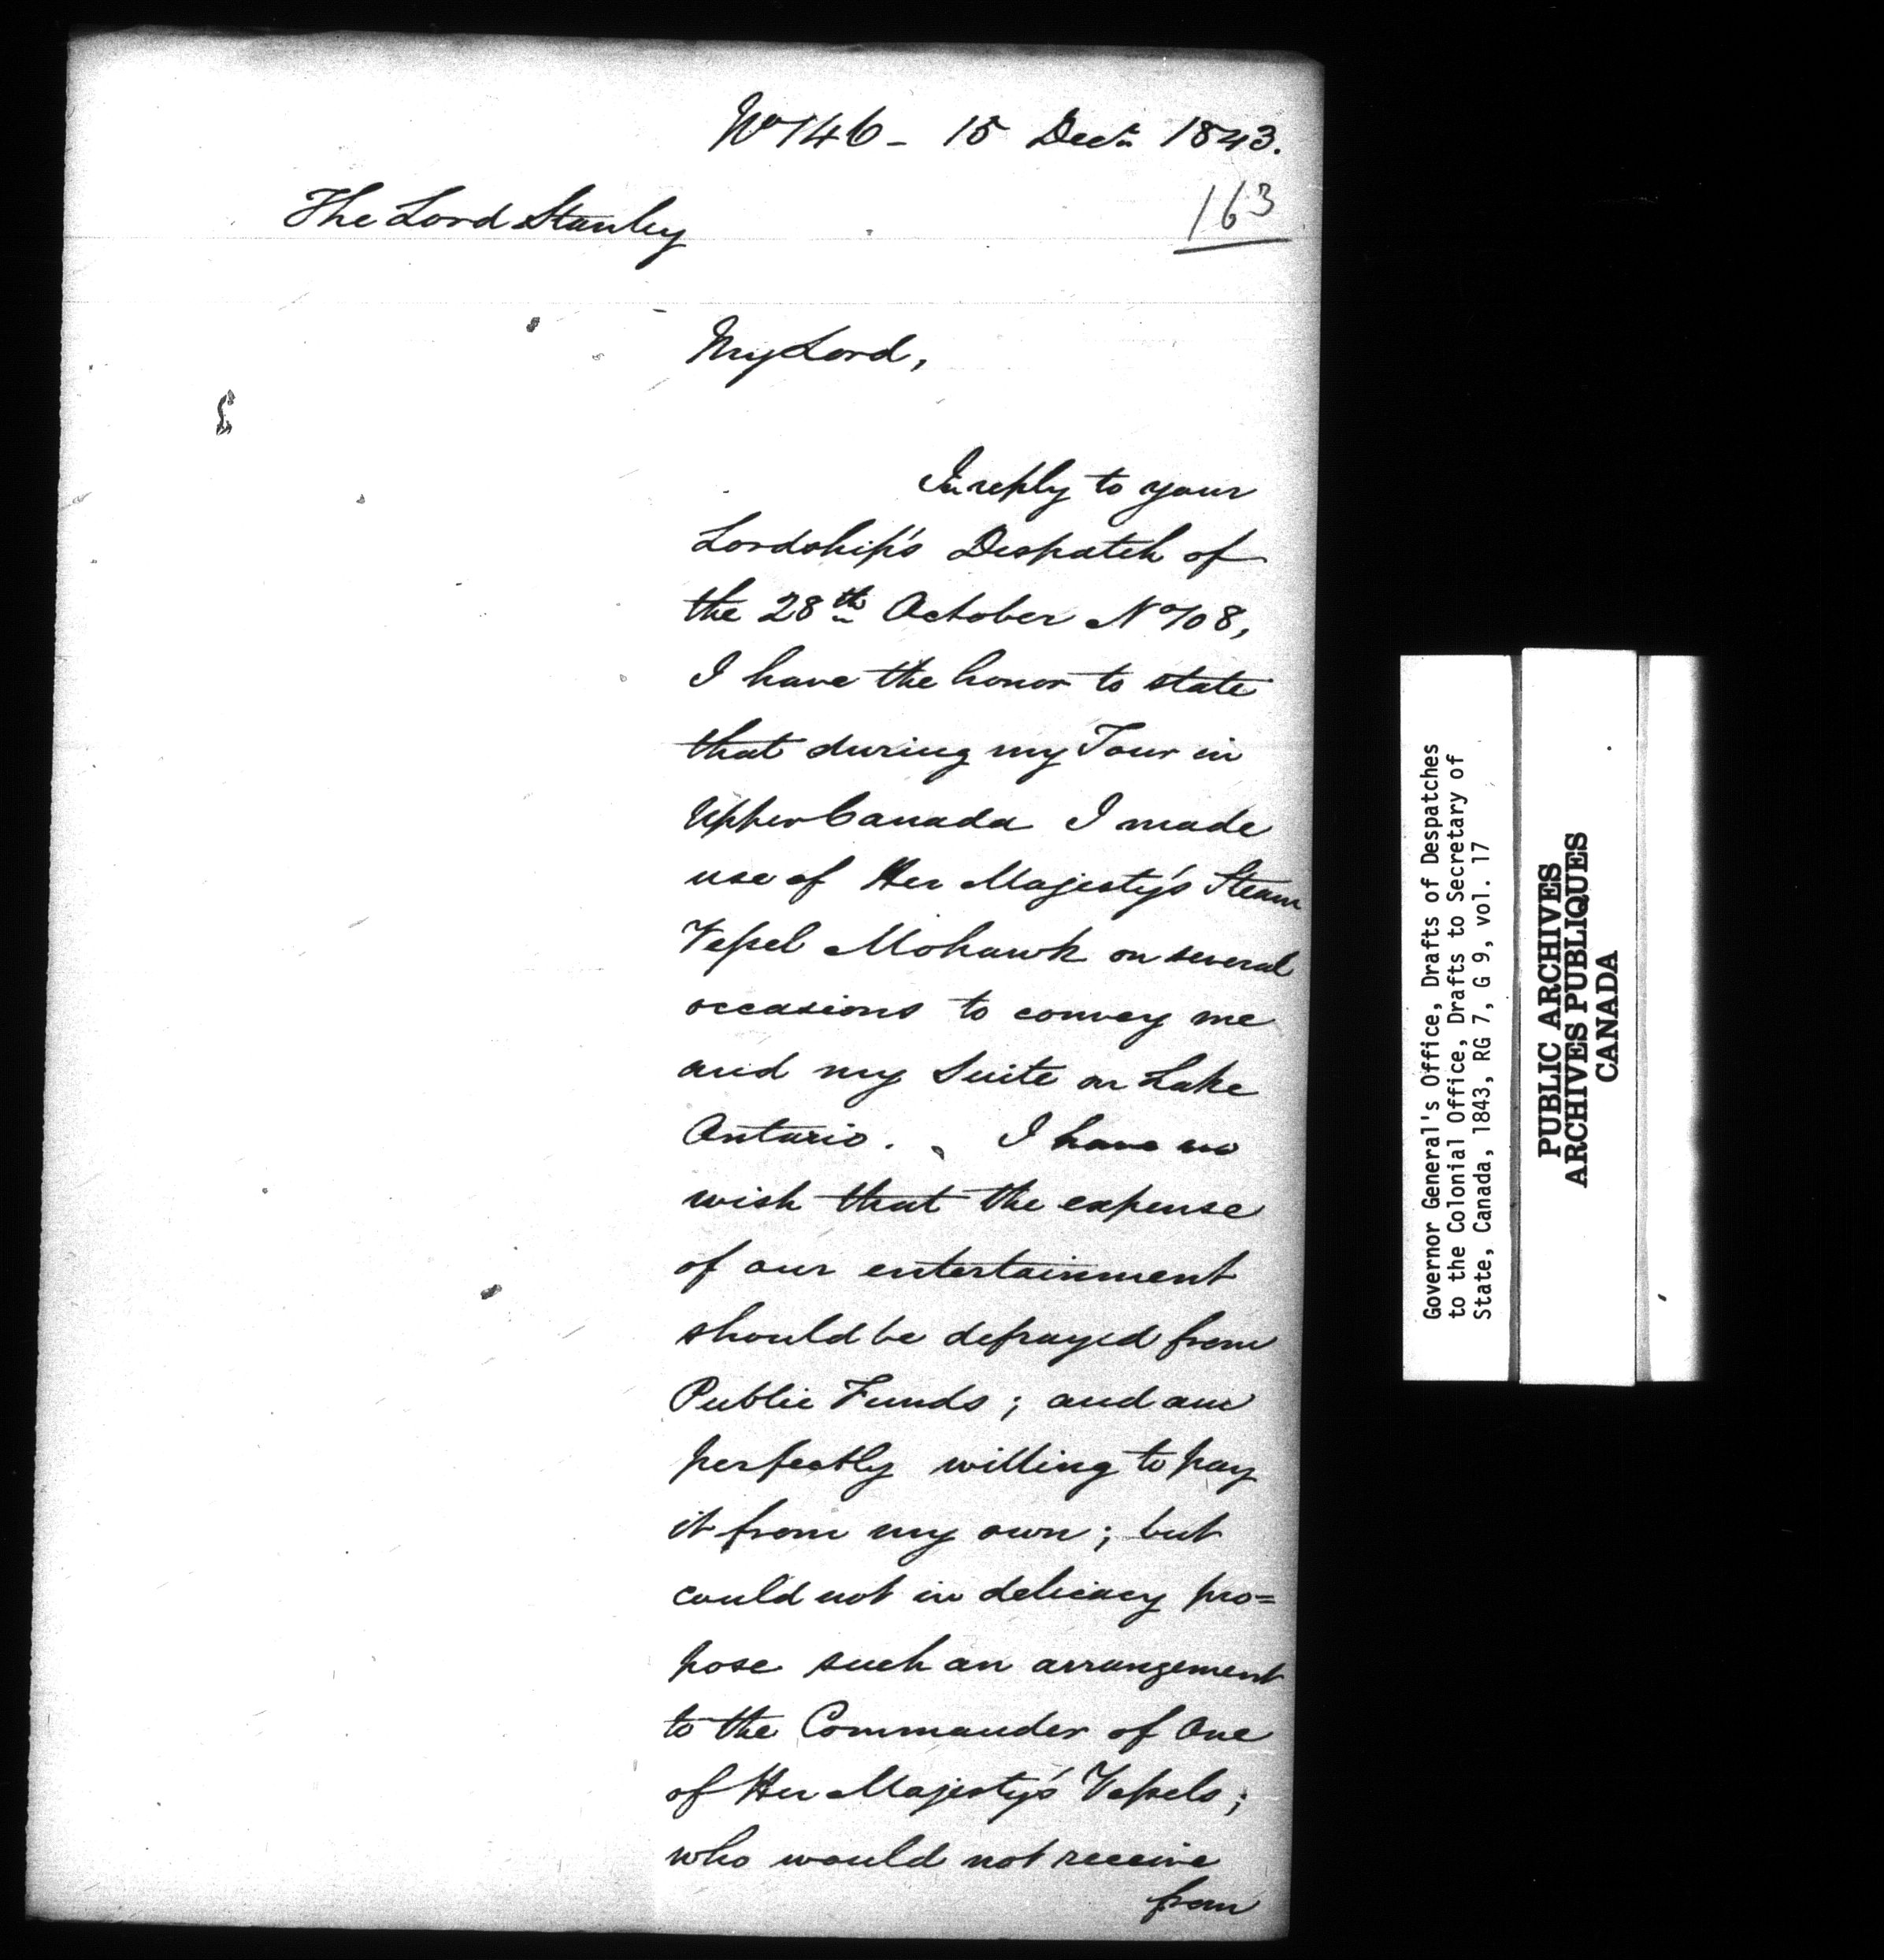 No 146 - 15 Decr 1843.
163
The Lord Stanley
My Lord,
In reply to your
Lordship's Despatch of
the 28th October No 108,
I have the honor to state
that during my Tour in
Upper Canada I made
use of Her Majesty's Steam
Vessel Mohawk on several
occasions to convey me
and my Suite on Lake
Ontario. I have no
wish that the expense
of our entertainment
should be defrayed from
Public Funds; and am
perfectly willing to pay
it from my own; but
could not in delicacy pro=
pose such an arrangement
to the Commander of One
of Her Majesty's Vessels;
who would not receive
from
Governor General's Office, Drafts of Despatches
to the Colonial Office, Drafts to Secretary of
State, Canada, 1843, RG 7, G 9, vol. 17
PUBLIC ARCHIVES
ARCHIVES PUBLIQUES
CANADA